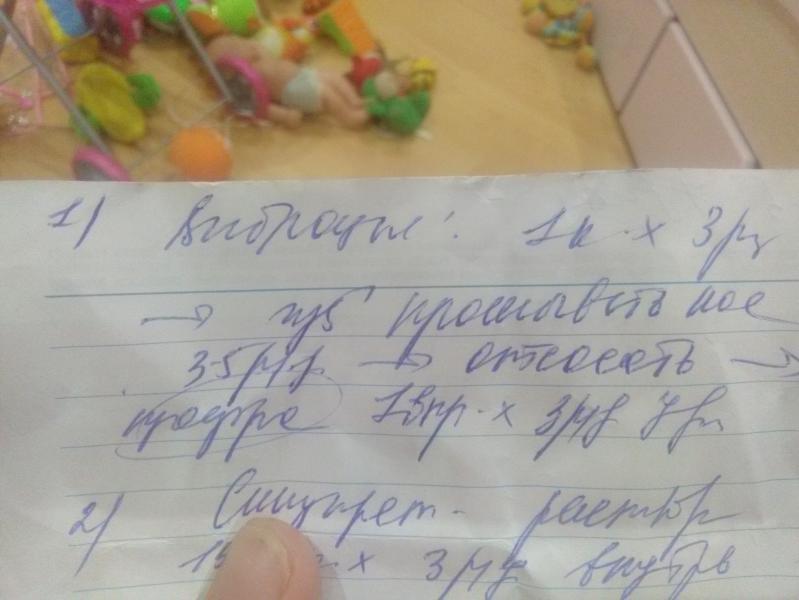 1) Виброцил: 1к × 3 р
→ промывать нос
3-5 р/д → отсосать →
1 впр × 3 р/д 7 дн
2) Синупрет - раствор
× 3 р/д внутрь